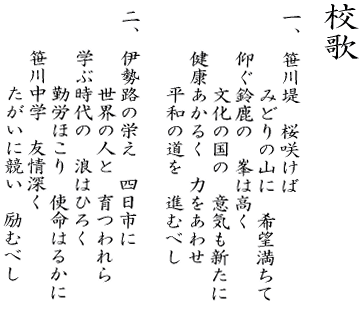 校歌
一、笹川堤　桜咲けば
みどりの山に　希望満ちて
仰ぐ鈴鹿の　峯は高く
文化の国の　意気も新たに
健康あかるく　力をあわせ
平和の道を　進むべし
二、伊勢路の栄え　四日市に
世界の人と　育つわれら
学ぶ時代の　浪はひろく
勤労ほこり　使命はるかに
笹川中学　友情深く
たがいに競い　励むべし